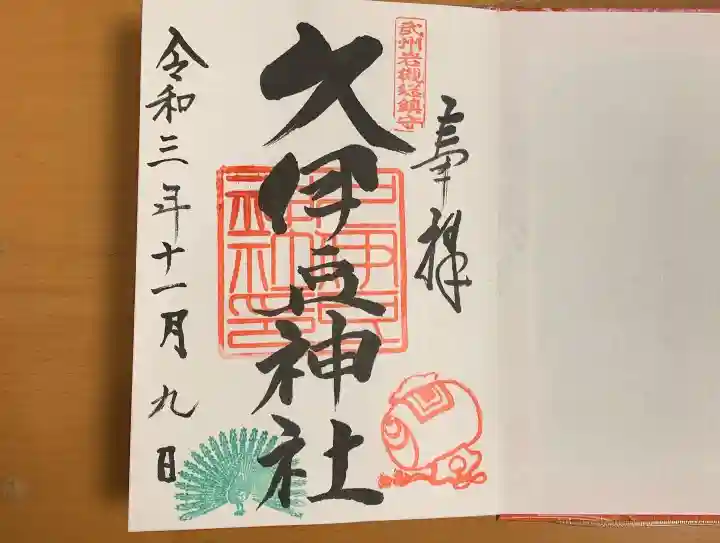 奉拝
武州岩槻総鎮守
久伊豆神社
令和三年十一月九日